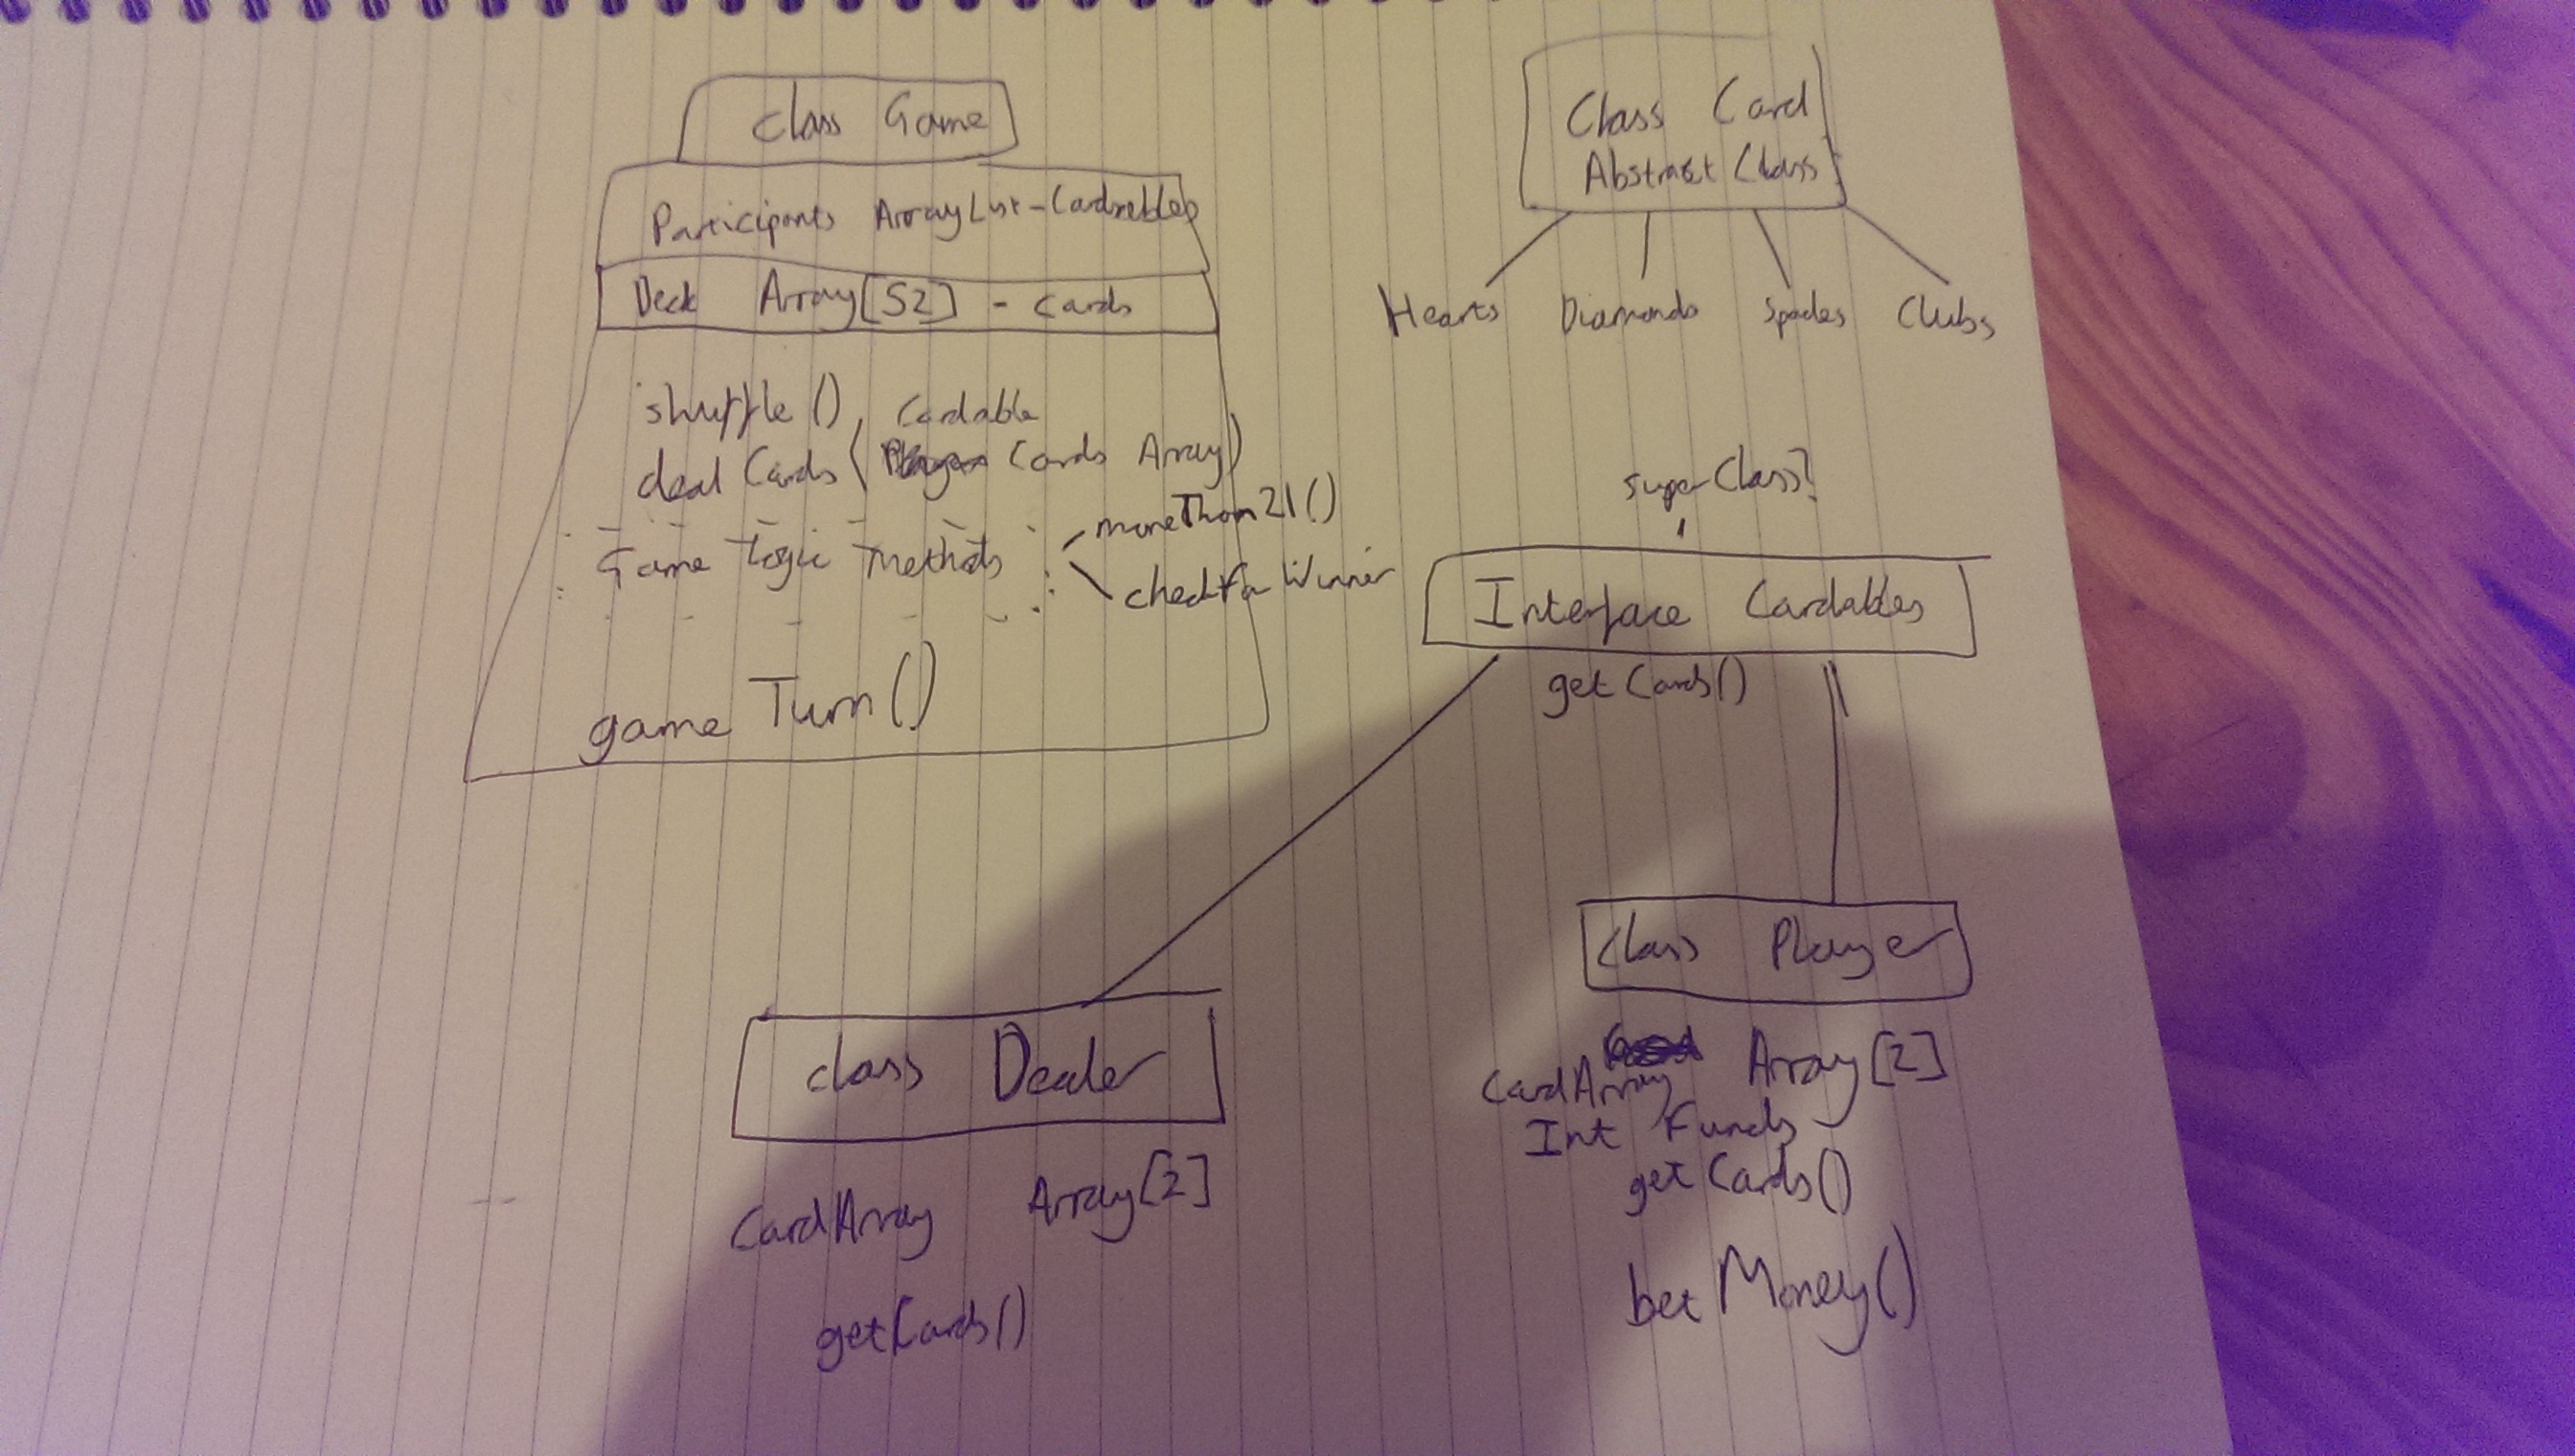 class Game
Participants ArrayList - Cardables
Deck Array[52] - cards
shuffle()
Cardable
deal Cards ( Cards Array)
Game logic methods
moreThan21()
checkForWinner
game Turn()
Class Card
Abstract Class
Hearts Diamonds Spades Clubs
super Class?
Interface Cardables
get Cards()
class Dealer
CardArray Array[2]
getCards()
class Player
CardArray Array[2]
Int Funds
get Cards()
bet Money()